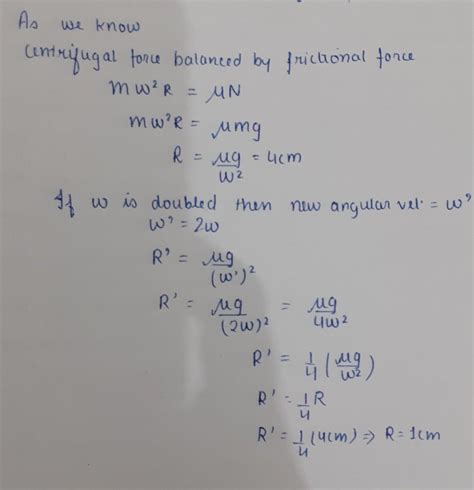 As we know
Centrifugal force balanced by frictional force
mω²R = μN
mω²R = μmg
R = μg/ω² = 4cm
If ω is doubled then new angular vel = ω'
ω' = 2ω
R' = μg/(ω')²
R' = μg/(2ω)² = μg/4ω²
R' = 1/4 (μg/ω²)
R' = 1/4 R
R' = 1/4 (4cm) ⇒ R = 1cm